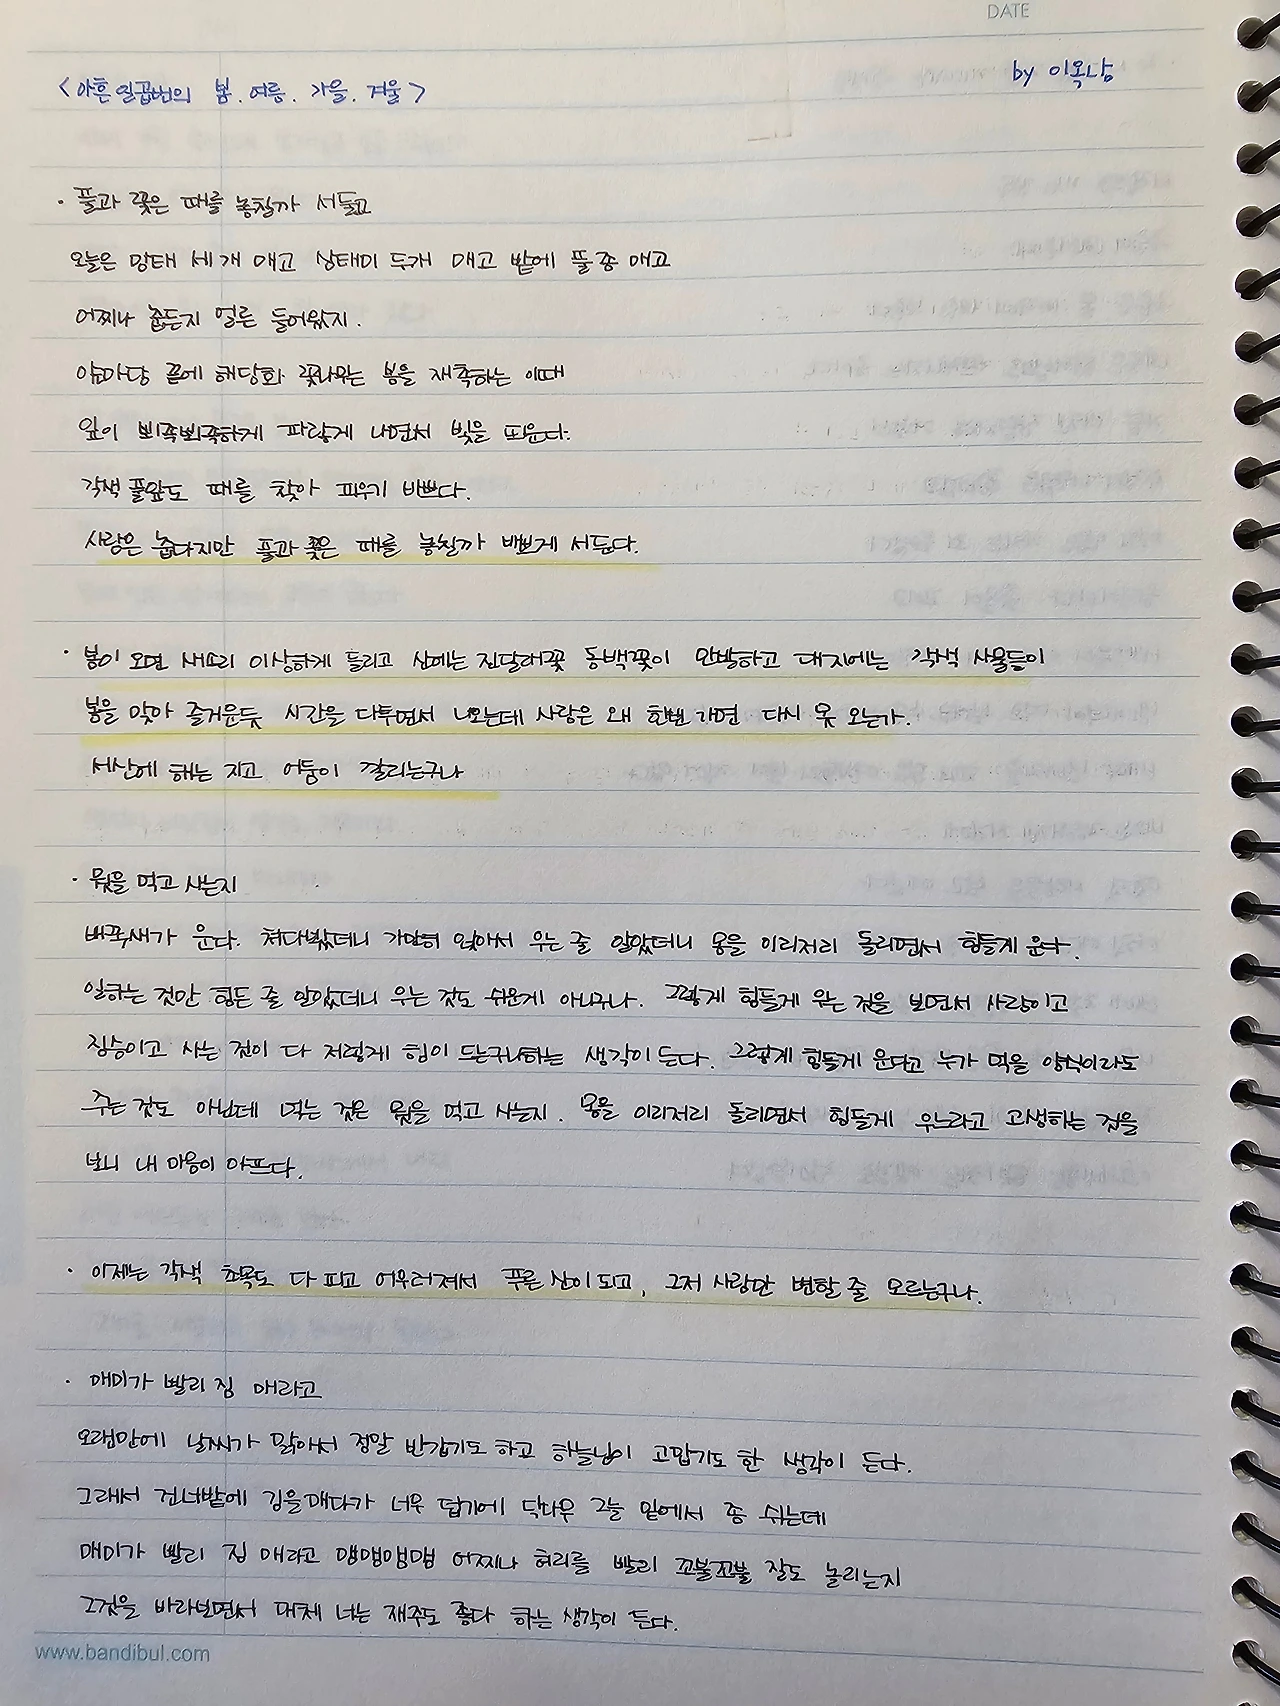 DATE
<아흔 일곱번의 봄. 여름. 가을. 겨울>
by 이옥남
· 풀과 꽃은 때를 놓칠까 서둘고
오늘은 망태 세 개 매고 상태미 두개 매고 밭에 풀 좀 매고
어찌나 춥든지 얼른 들어왔지.
앞마당 끝에 해당화 꽃나무는 봄을 재촉하는 이때
잎이 삐쭉삐쭉하게 파랗게 나면서 빛을 띠운다.
각색 풀잎도 때를 찾아 피우기 바쁘다.
사람은 춥다지만 풀과 꽃은 때를 놓칠까 바쁘게 서둔다.
· 봄이 오면 새소리 이상하게 들리고 산에는 진달래꽃 동백꽃이 만발하고 대지에는 각색 사물들이
봄을 맞아 즐거운듯 시간을 다투면서 나오는데 사람은 왜 한번 가면 다시 못 오는가.
서산에 해는 지고 어둠이 깔리는구나
· 뭣을 먹고 사는지
배쪽새가 운다. 쳐다봤더니 가만히 앉아서 우는 줄 알았더니 몸을 이리저리 돌리면서 힘들게 운다.
일하는 것만 힘든 줄 알았더니 우는 것도 쉬운게 아니구나. 그렇게 힘들게 우는 것을 보면서 사람이고
짐승이고 사는 것이 다 저렇게 힘이 드는구나하는 생각이 든다. 그렇게 힘들게 운다고 누가 먹을 양식이라도
주는 것도 아닌데 먹는 것은 뭣을 먹고 사는지. 몸을 이리저리 돌리면서 힘들게 우느라고 고생하는 것을
보니 내 마음이 아프다.
· 이제는 각색 초목도 다 피고 어우러져서 푸른 산이 되고, 그저 사람만 변할 줄 모르는구나.
· 매미가 빨리 짐 매라고
오랜만에 날씨가 맑아서 정말 반갑기도 하고 하늘님이 고맙기도 한 생각이 든다.
그래서 건너밭에 김을 매다가 너무 덥기에 그늘 밑에서 좀 쉬는데
매미가 빨리 짐 매라고 맴맴맴맴 어찌나 허리를 빨리 꼬불꼬불 잘도 놀리는지
그것을 바라보면서 대체 너는 재주도 좋다 하는 생각이 든다.
www.bandibul.com